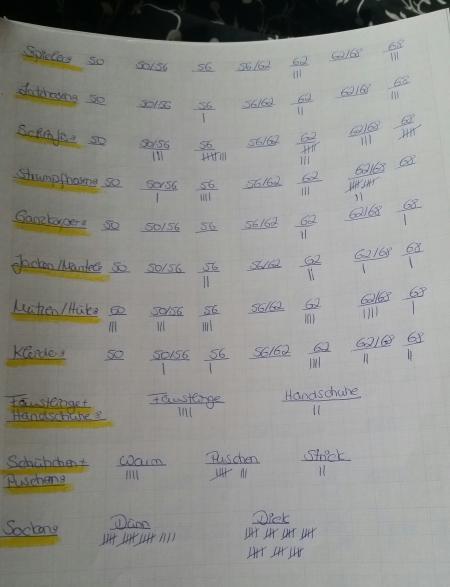 Spieler: 50 50/56 56 56/62 62 62/68 68
50 50/56 56 56/62 62 62/68 68
50 50/56 56 56/62 62 62/68 68
Strumpfhosen: 50 50/56 56 56/62 62 62/68 68
Ganzkörper: 50 50/56 56 56/62 62 62/68 68
Jacken/Mäntel: 50 50/56 56 56/62 62 62/68 68
Mützen/Hüte: 50 50/56 56 56/62 62 62/68 68
Kleider: 50 50/56 56 56/62 62 62/68 68
Fäustlinge+ Fäustlinge Handschuhe
Handschuhe:
Schühchen+ Warm Puschen Strick
Puschen:
Socken: Dünn Dick